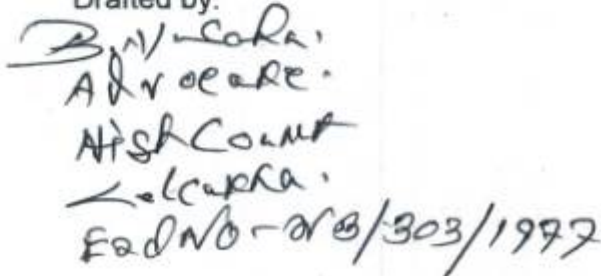 Drafted by:
Advocate.
High Court
Calcutta.
NO-WB/303/1977